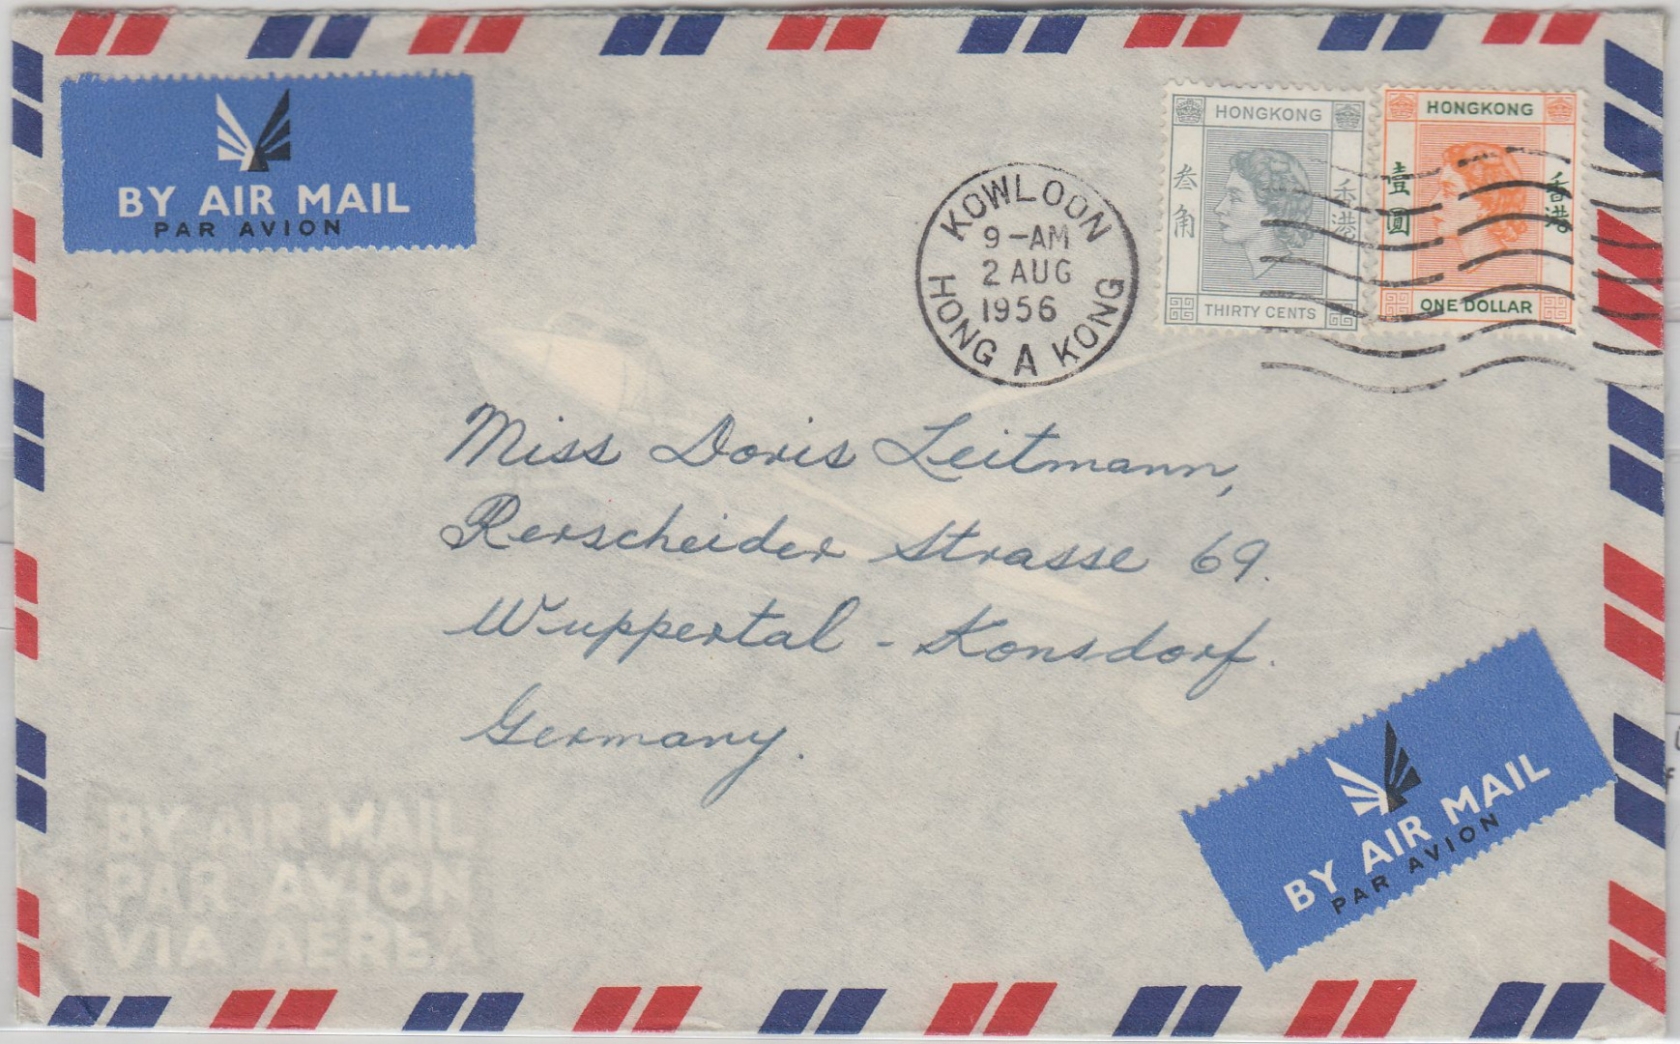 BY AIR MAIL
PAR AVION
HONGKONG
叁角
香港
THIRTY CENTS
HONGKONG
壹圓
香港
ONE DOLLAR
KOWLOON
9-AM
2 AUG
1956
HONG A KONG
Miss Doris Leitmann,
Rerscheider Strasse 69.
Wuppertal - Konsdorf.
Germany.
BY AIR MAIL
PAR AVION
VIA AEREA
BY AIR MAIL
PAR AVION